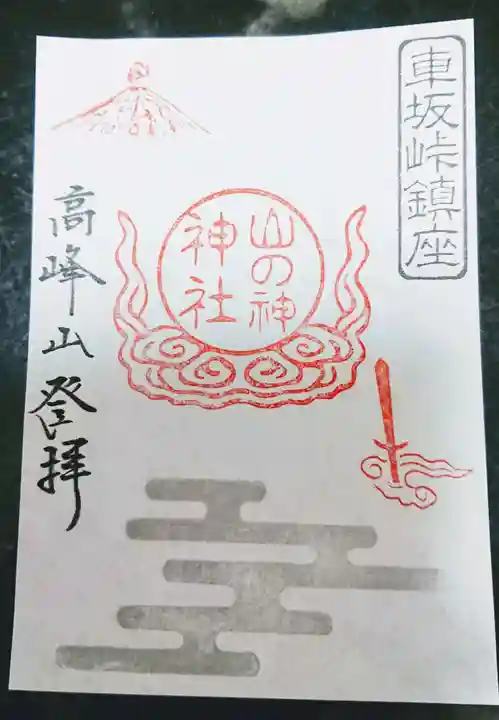 車坂峠鎮座
山の神
神社
高峰山登拝